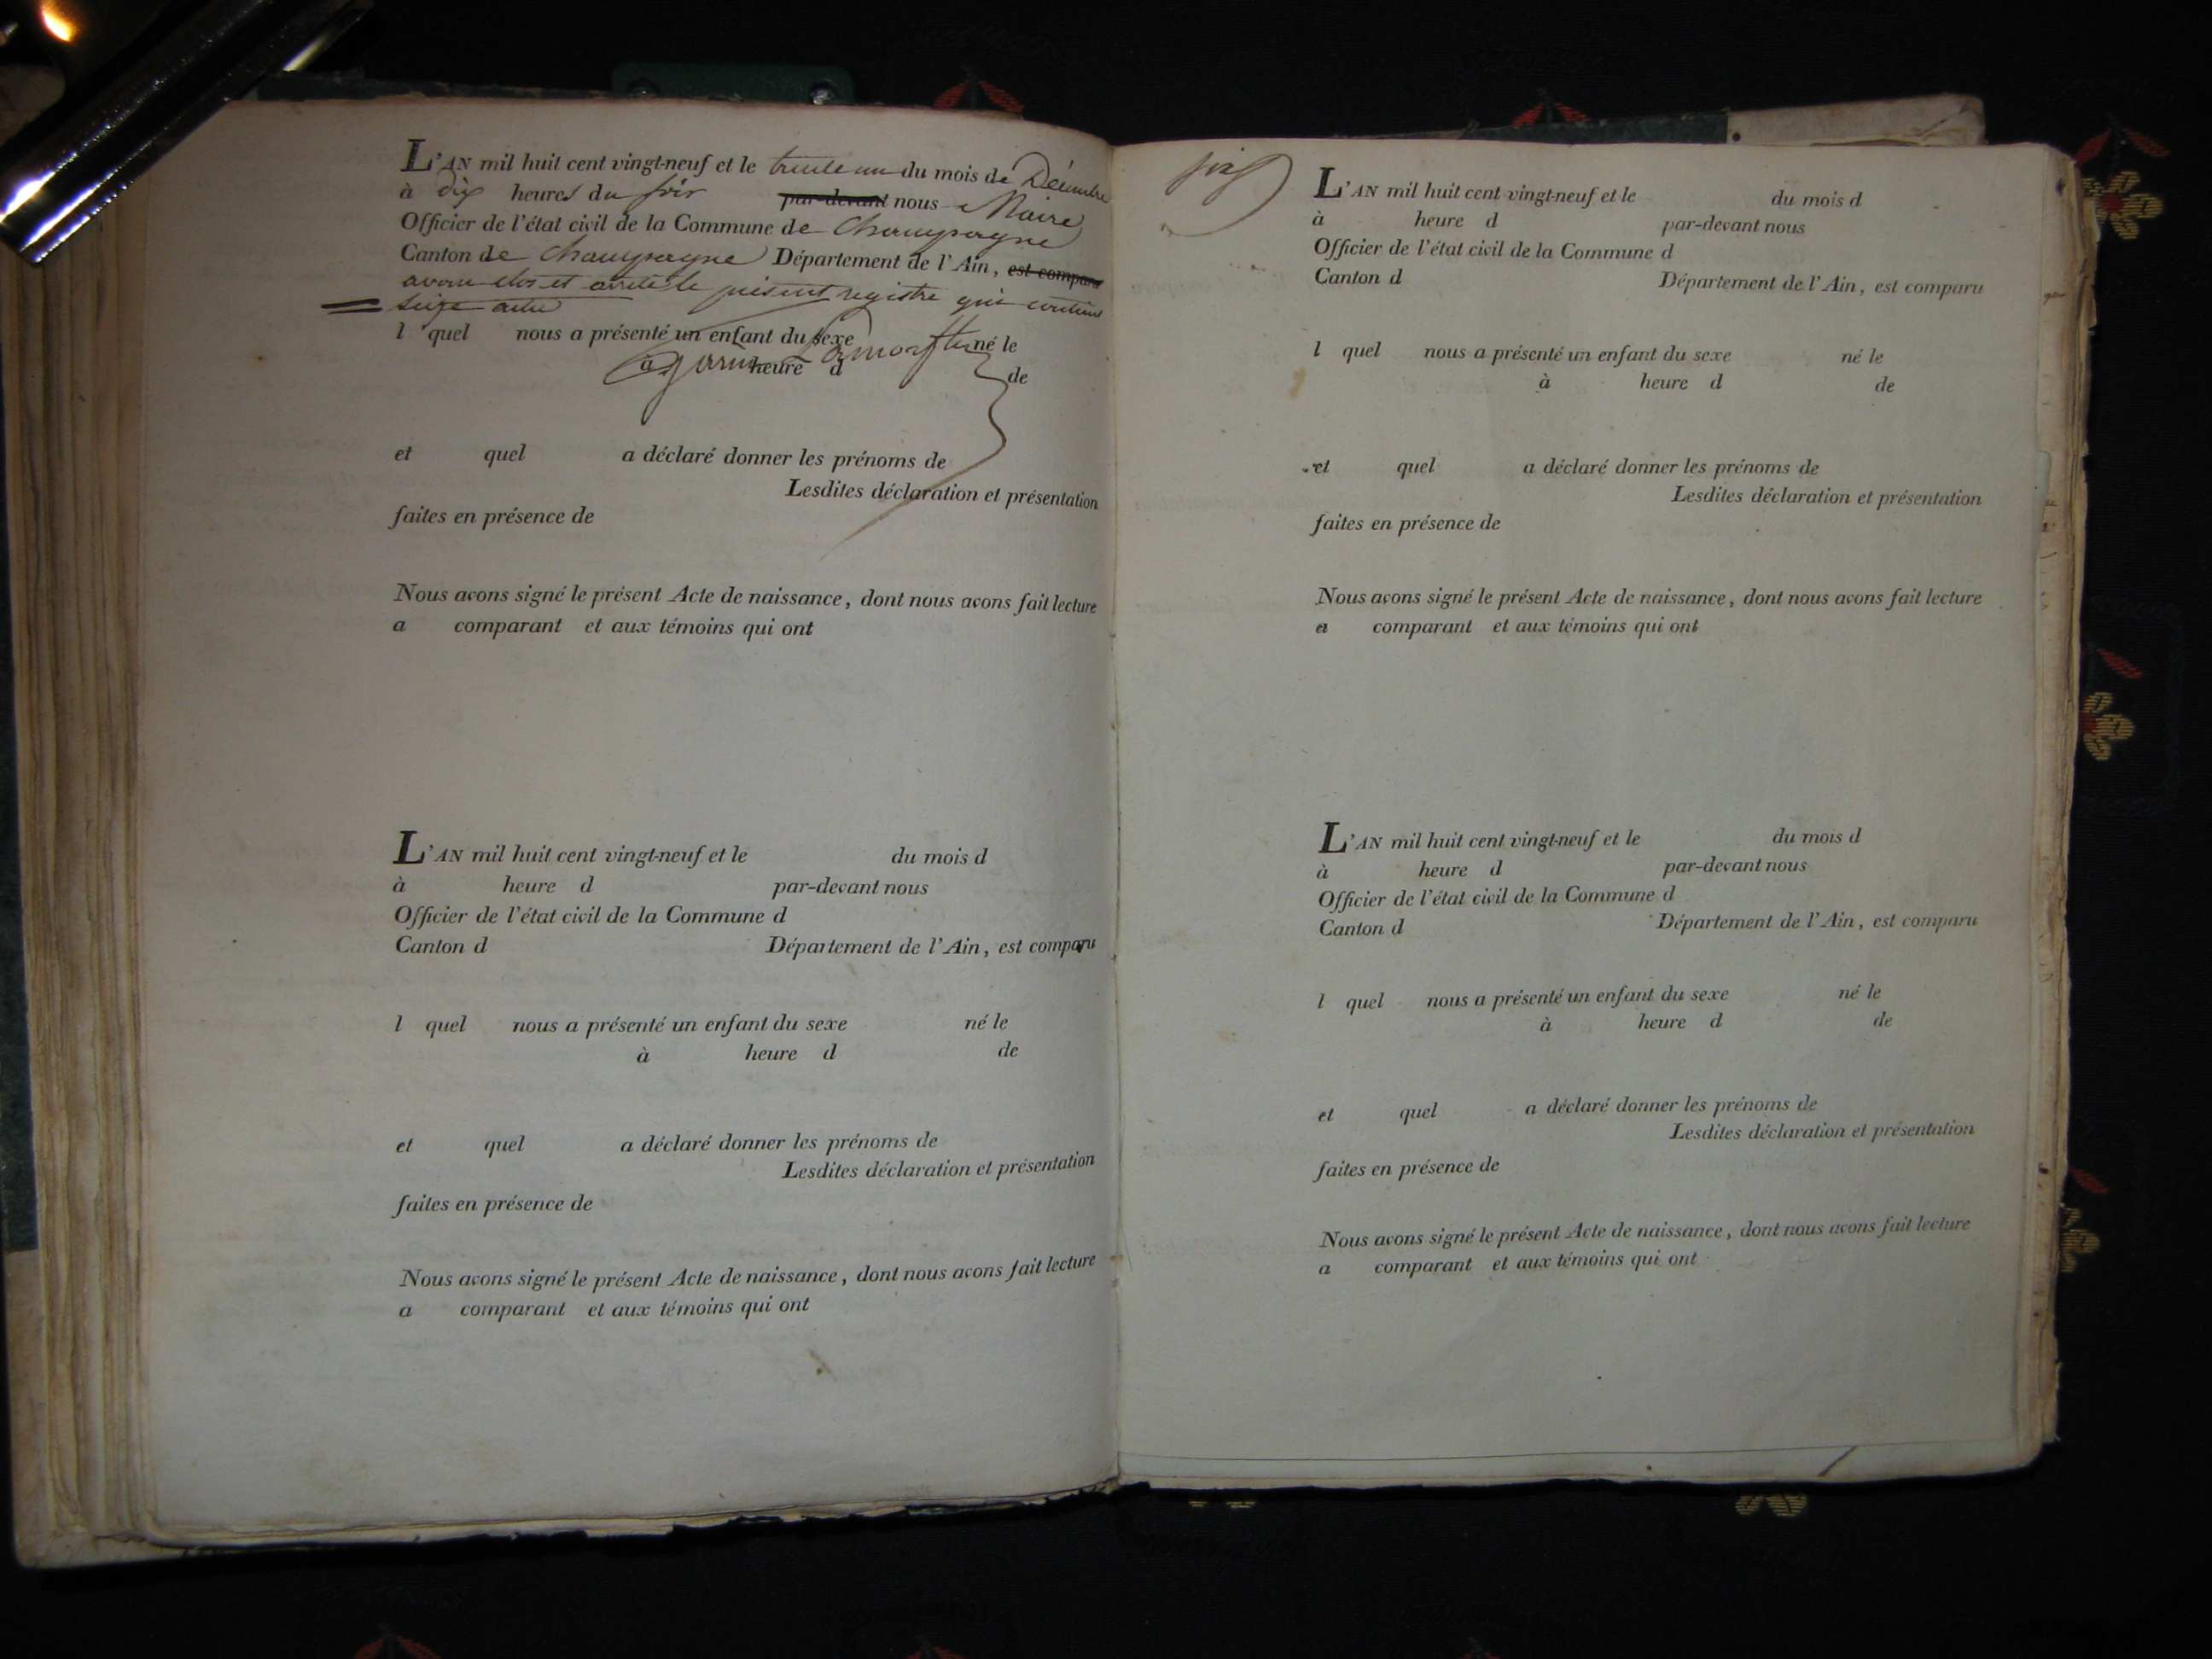 L'AN mil huit cent vingt-neuf et le trente un du mois de Décembre
à dix heures du soir par-devant nous Maire
Officier de l'état civil de la Commune de Champagne
Canton de Champagne Département de l'Ain, est comparu
avons clos et arrêté le présent registre qui contient
seize actes
l quel nous a présenté un enfant du sexe né le
à heure d de
et quel a déclaré donner les prénoms de
Lesdites déclaration et présentation
faites en présence de
Nous avons signé le présent Acte de naissance, dont nous avons fait lecture
a comparant et aux témoins qui ont
L'AN mil huit cent vingt-neuf et le du mois d
à heure d par-devant nous
Officier de l'état civil de la Commune d
Canton d Département de l'Ain, est comparu
l quel nous a présenté un enfant du sexe né le
à heure d de
et quel a déclaré donner les prénoms de
Lesdites déclaration et présentation
faites en présence de
Nous avons signé le présent Acte de naissance, dont nous avons fait lecture
a comparant et aux témoins qui ont
L'AN mil huit cent vingt-neuf et le du mois d
à heure d par-devant nous
Officier de l'état civil de la Commune d
Canton d Département de l'Ain, est comparu
l quel nous a présenté un enfant du sexe né le
à heure d de
et quel a déclaré donner les prénoms de
Lesdites déclaration et présentation
faites en présence de
Nous avons signé le présent Acte de naissance, dont nous avons fait lecture
a comparant et aux témoins qui ont
L'AN mil huit cent vingt-neuf et le du mois d
à heure d par-devant nous
Officier de l'état civil de la Commune d
Canton d Département de l'Ain, est comparu
l quel nous a présenté un enfant du sexe né le
à heure d de
et quel a déclaré donner les prénoms de
Lesdites déclaration et présentation
faites en présence de
Nous avons signé le présent Acte de naissance, dont nous avons fait lecture
a comparant et aux témoins qui ont